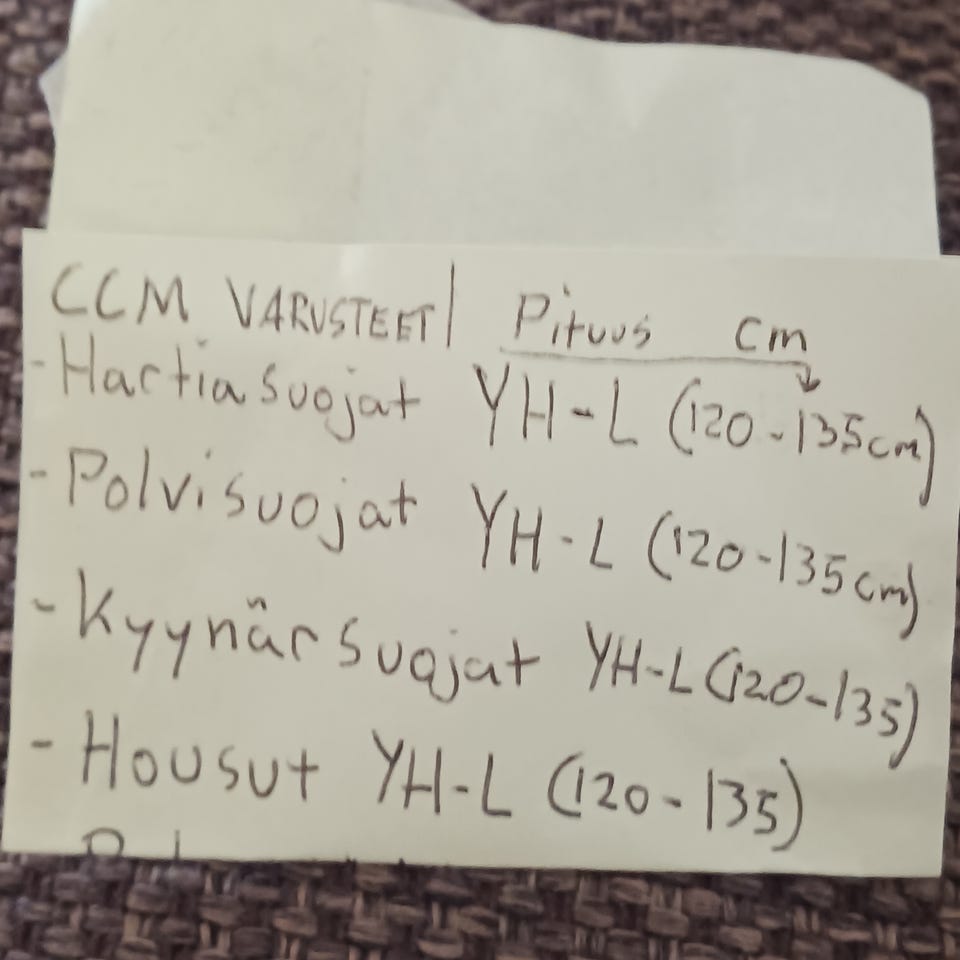 CCM VARUSTEET| Pituus cm
- Hartiasuojat YH-L (120-135cm)
- Polvisuojat YH-L (120-135cm)
- Kyynärsuojat YH-L (120-135)
- Housut YH-L (120-135)